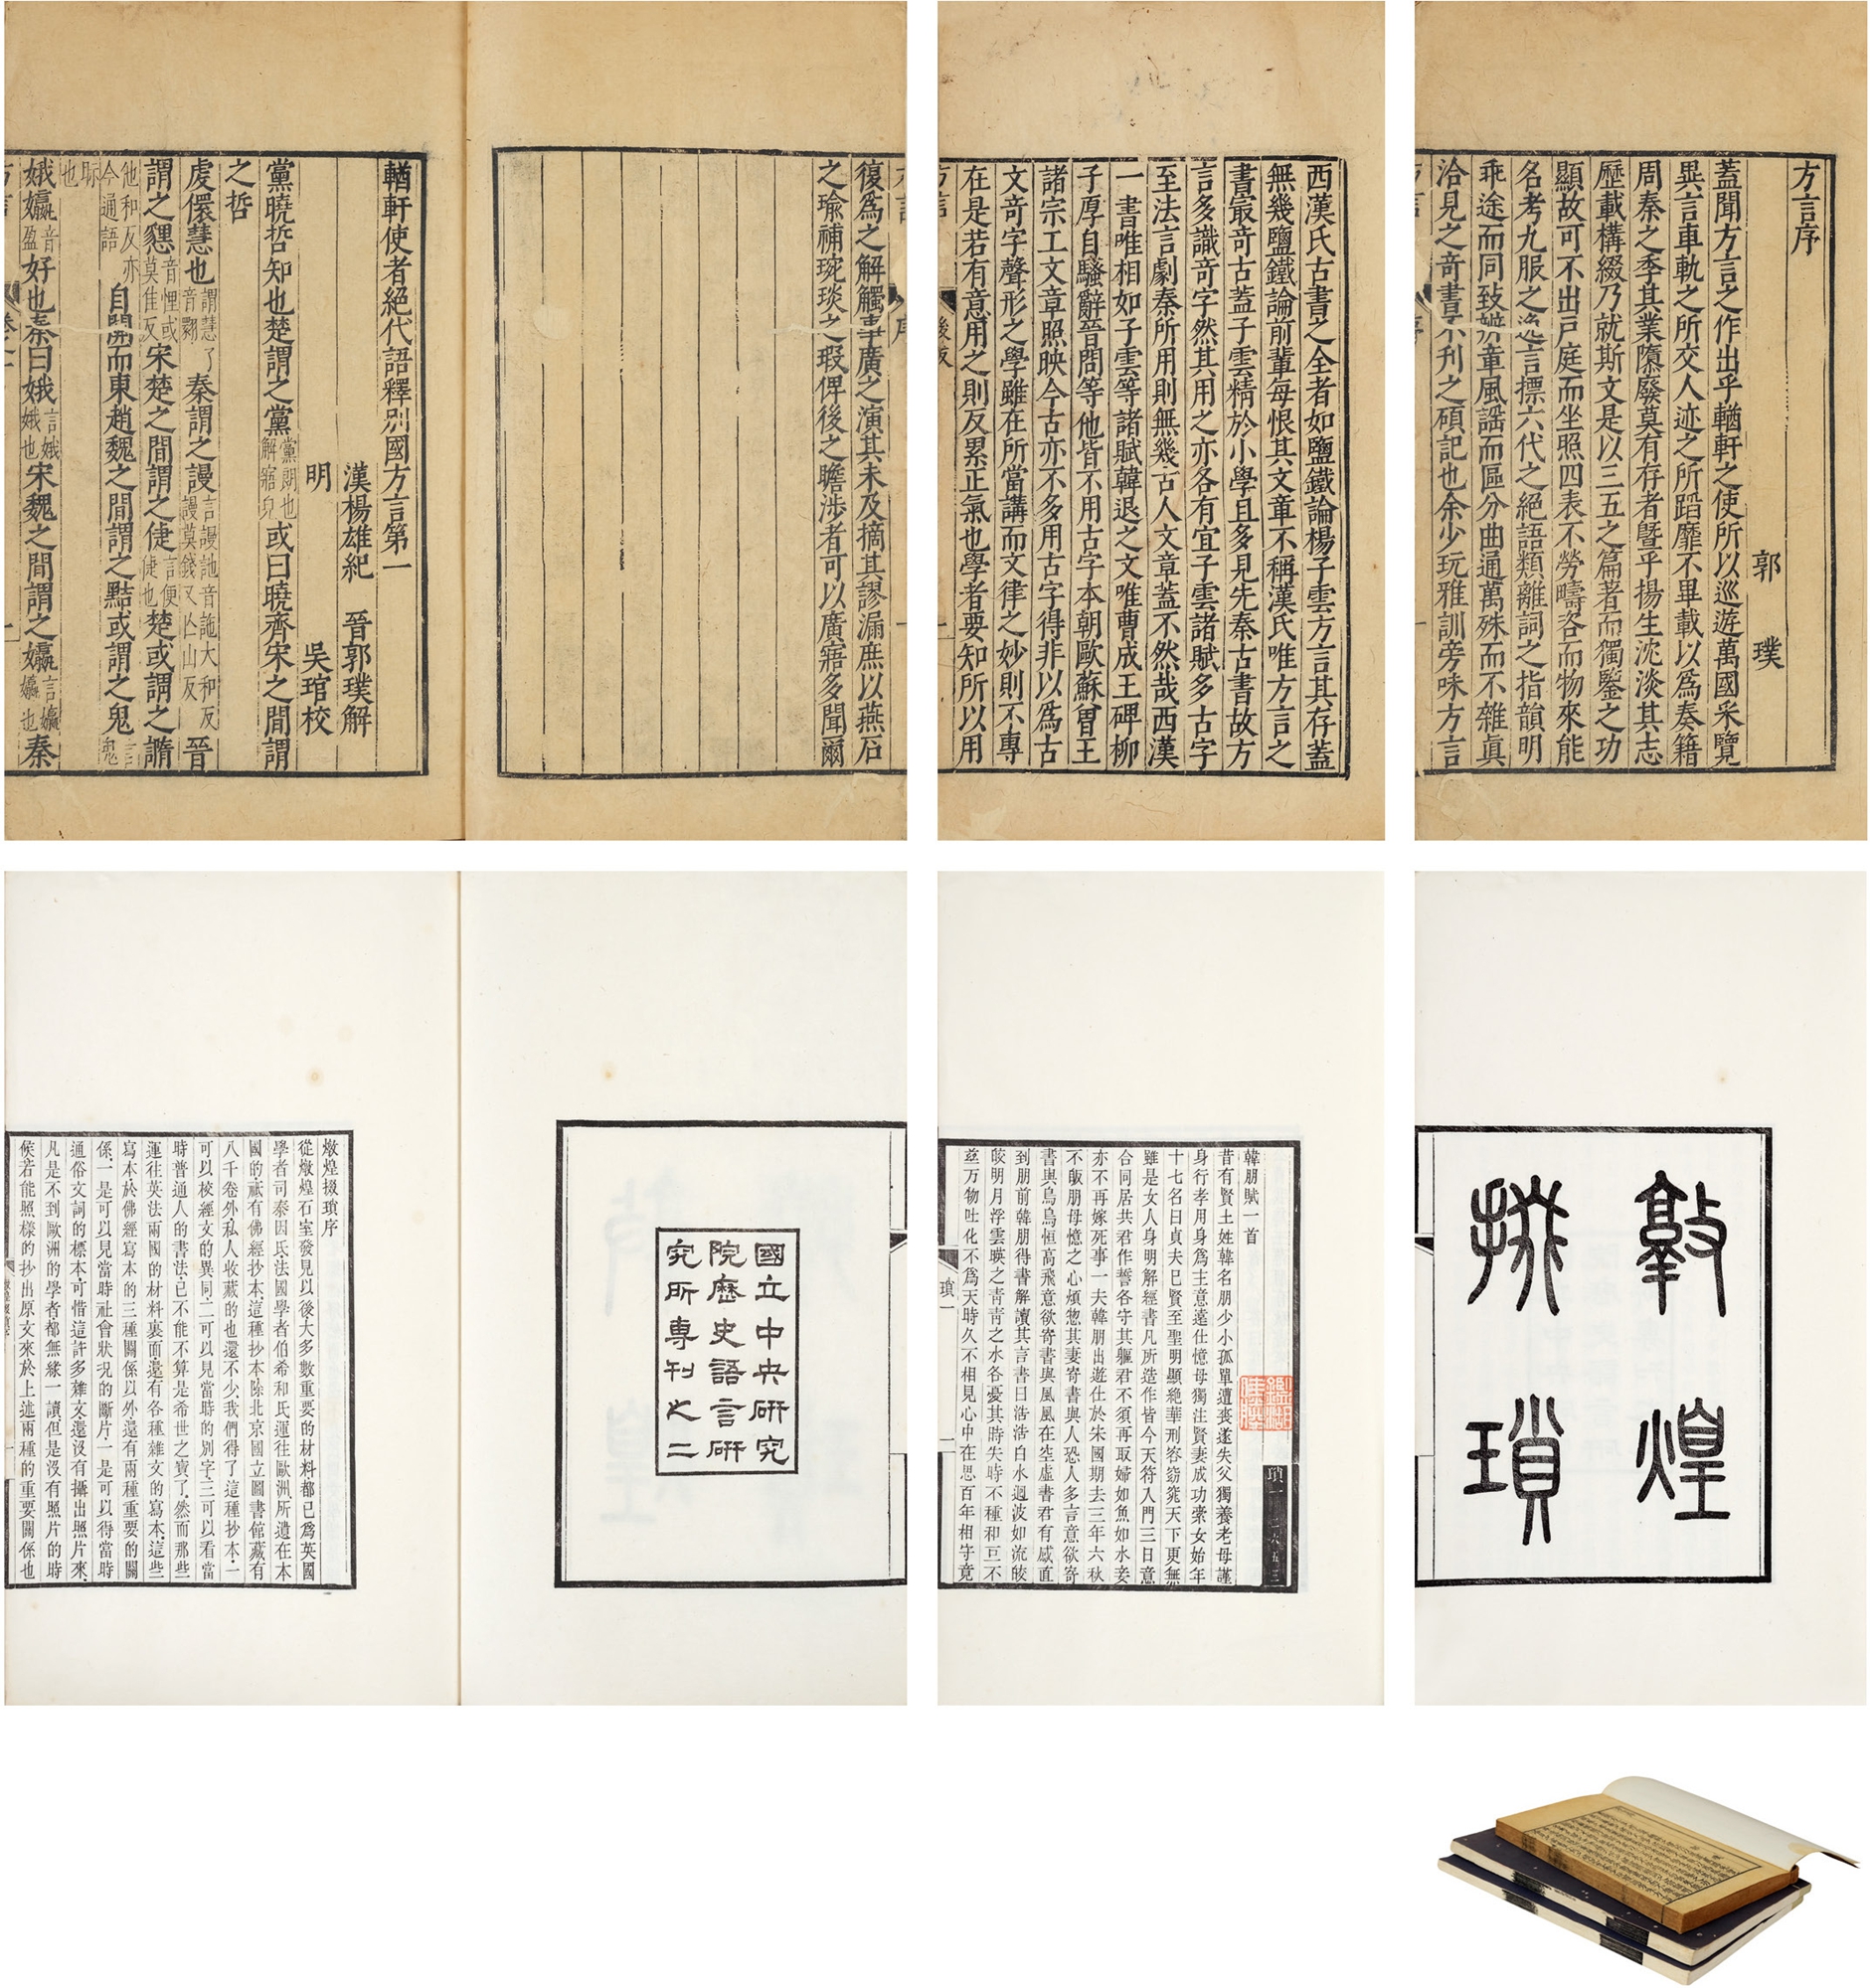 方言序
郭璞
蓋聞方言之作出乎輶軒之使所以巡遊萬國采覽
異言車軌之所交人迹之所蹈靡不畢載以爲奏籍
周秦之季其業隳廢莫有存者曁乎揚生沈淡其志
歷載構綴乃就斯文是以三五之篇著而獨鑒之功
顯故可不出戸庭而坐照四表不勞疇咨而物來能
名考九服之逸言摽六代之絕語類離詞之指韻明
乖途而同致辨章風謡而區分曲通萬殊而不雜眞
洽見之奇書不刋之碩記也余少玩雅訓旁味方言
西漢氏古書之全者如鹽鐵論楊子雲方言其存蓋
無幾鹽鐵論前輩每恨其文章不稱漢氏唯方言之
書最奇古蓋子雲精於小學且多見先秦古書故方
言多識奇字然其用之亦各有宜子雲諸賦多古字
至法言劇秦所用則無幾古人文章蓋不然哉西漢
一書唯相如子雲等諸賦韓退之文唯曹成王碑柳
子厚自騷辭晉問等他皆不用古字本朝歐蘇曾王
諸宗工文章照映今古亦不多用古字得非以爲古
文奇字聲形之學雖在所當講而文律之妙則不專
在是若有意用之則反累正氣也學者要知所以用
後跋
復爲之解觸事廣之演其未及摘其謬漏庶以燕石
之瑜補琬琰之瑕俾後之瞻涉者可以廣寤多聞爾
輶軒使者絕代語釋別國方言第一
漢楊雄紀 晉郭璞解
明 吳琯校
黨曉哲知也楚謂之黨黨朗也解寤皃或曰曉齊宋之間謂
之哲
虔儇慧也謂慧了音翾秦謂之謾言謾訑音訑大和反謾莫錢又亡山反晉
謂之㦟音悝或莫佳反宋楚之間謂之倢言便倢也楚或謂之䜏
他和反亦今通語自關而東趙魏之間謂之黠或謂之鬼言鬼
眎也
娥㜲音盈好也秦曰娥言娥娥也宋魏之間謂之㜲言㜲㜲也秦
敦煌
掇瑣
韓朋賦一首
昔有賢士姓韓名朋少小孤單遭喪遂失父獨養老母謹
身行孝用身爲主意遠仕憶母獨注賢妻成功索女始年
十七名曰貞夫已賢至聖明顯絶華刑容窈窕天下更無
雖是女人身明解經書凡所造作皆今天符入門三日意
合同居共君作誓各守其軀君不須再取婦如魚如水妾
亦不再嫁死事一夫韓朋出遊仕於朱國期去三年六秋
不皈朋母憶之心煩惣其妻寄書與人恐人多言意欲寄
書與鳥鳥恒高飛意欲寄書與風風在空虛書君有感直
到朋前韓朋得書解讀其言書曰浩浩白水迴波如流皎
皎明月浮雲暎之青青之水各憂其時失時不種和亘不
兹万物吐化不爲天時久不相見心中在思百年相守竟
瑣一
瑣一 二六五三
國立中央研究
院歷史語言研
究所專刊之二
燉煌掇瑣序
從燉煌石室發見以後大多數重要的材料都已爲英國
學者司泰因氏法國學者伯希和氏運往歐洲所遺在本
國的祗有佛經抄本這種抄本除北京國立圖書館藏有
八千卷外私人收藏的也還不少我們得了這種抄本一
可以校經文的異同二可以見當時的別字三可以看當
時普通人的書法已不能不算是希世之寶了然而那些
運往英法兩國的材料裏面還有各種雜文的寫本這些
寫本於佛經寫本的三種關係以外還有兩種重要的關
係一是可以見當時社會狀況的斷片一是可以得當時
通俗文詞的標本可惜這許多雜文還沒有攝出照片來
凡是不到歐洲的學者都無緣一讀但是沒有照片的時
候若能照樣的抄出原文來於上述兩種的重要關係也